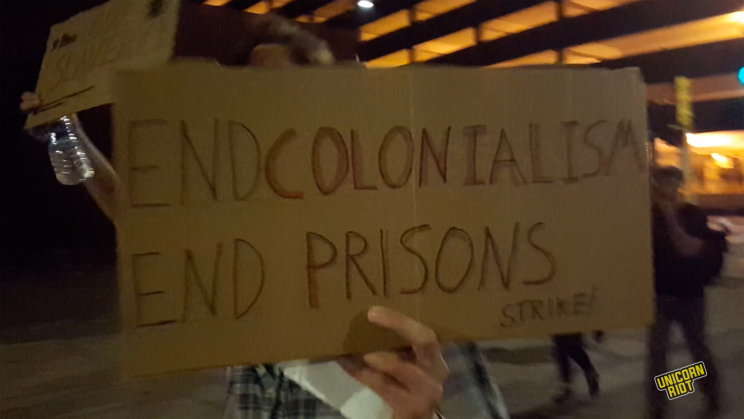 END COLONIALISM
END PRISONS
STRIKE!
UNICORN
RIOT